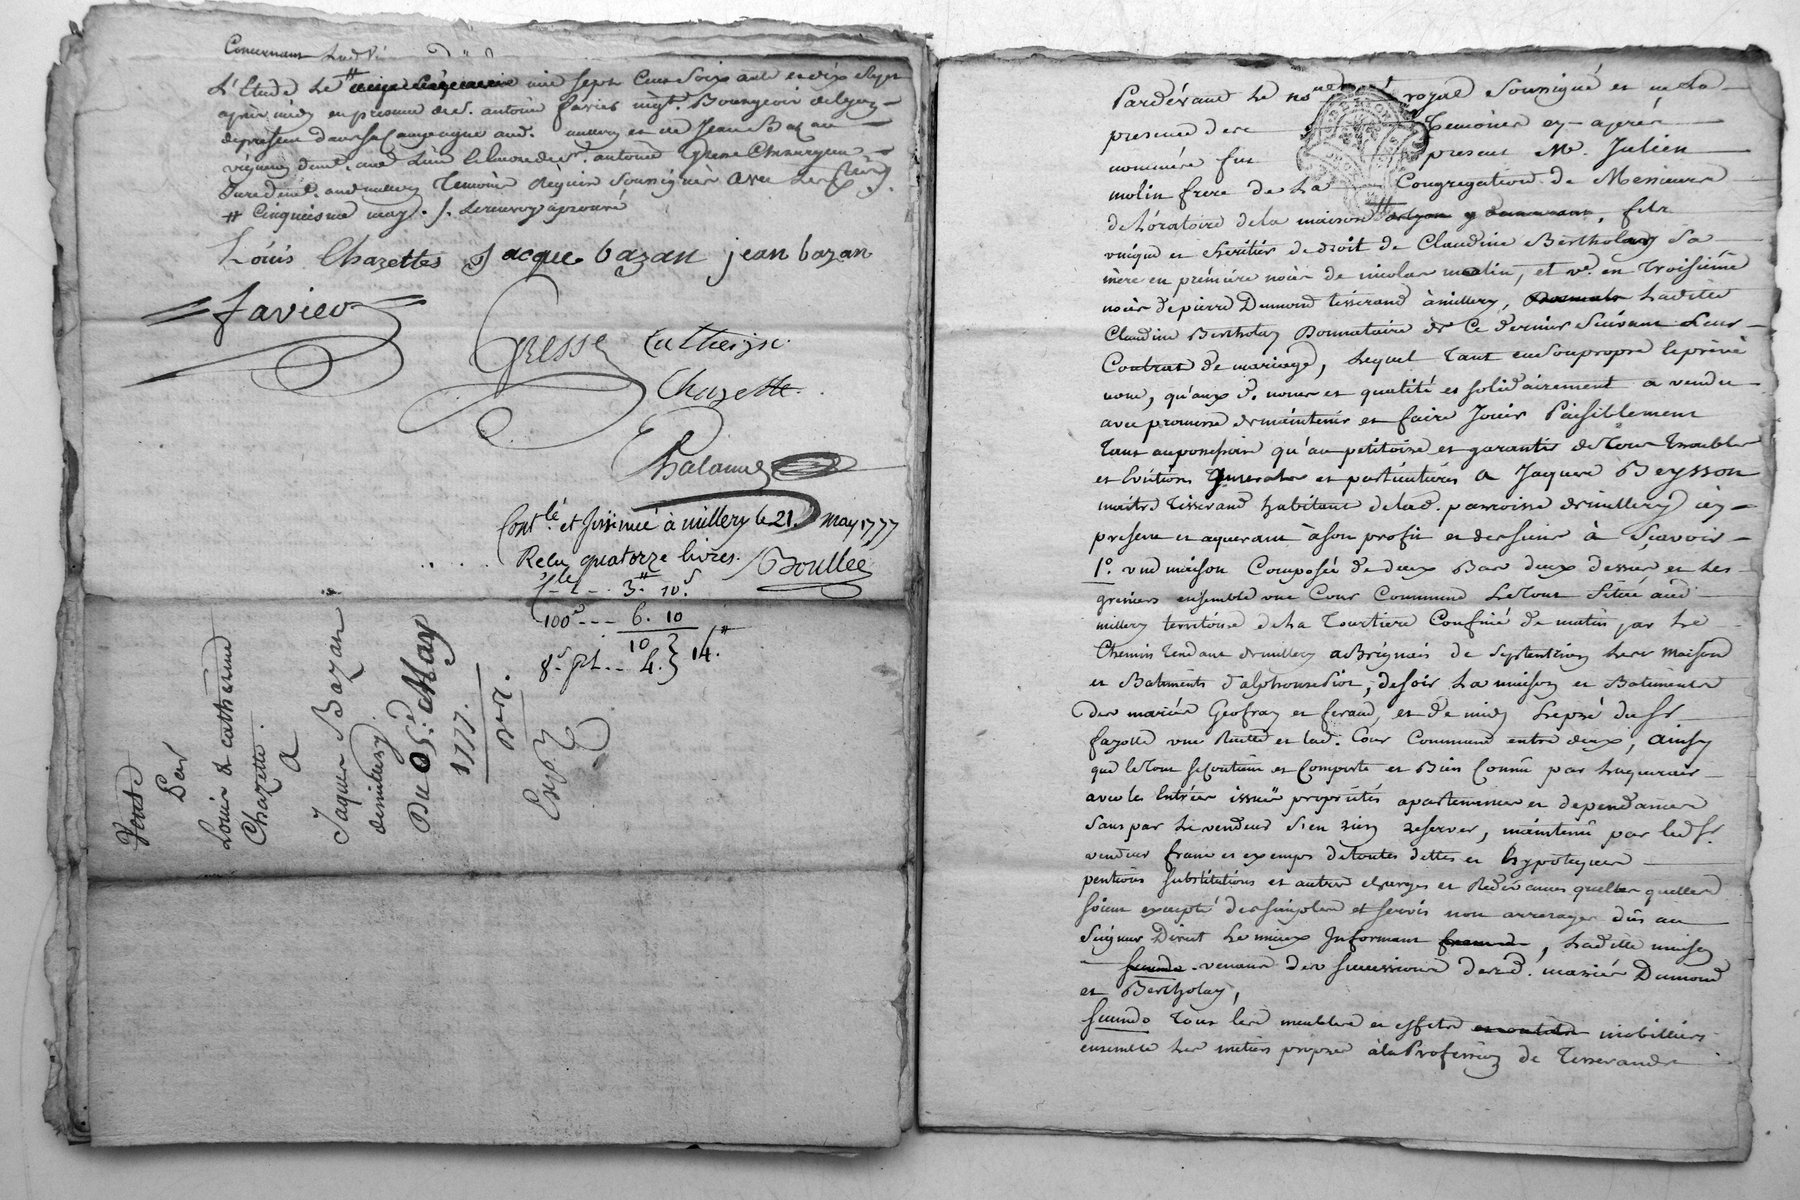 Concernant
L'Etude Le # mil sept Cent Soixante et dix sept
après midy en presence de s. antoine favier negt. Bourgeois de lyon
de présent dans sa Campagne aud. millery et de Jean Bazan
vigneron demt. aud. lieu antoine Gresse Chirurgien
Juré demt. aud. millery Temoins Requis Soussignés avec les
# Cinquième may. approuvé
Louis Chazettes Jacque bazan jean bazan
favier
Gresse Catherine
Chazette
Thalamel
Contlé. et Insinué à millery le 21. May 1777
Reçu quatorze livres. Boullée
3.# 10.s
100e --- 6. 10
10
8.s pl. -- 4. } 14.#
Vente
Par
Louis & catherine
Chazette.
A
Jaques Bazan
de millery.
Du 05.e May
1777.
Exp.
Pardevant Le Royal Soussigné et en la
presence des Temoins cy-après
nommés fut present Mr. Julien
molin frere de La Congregation de Messieurs
de L'oratoire de la maison # de lyon y demeurant, fils
unique et heritier de droit de Claudine Bertholay Sa
mère en première noces de nicolas molin, et ve. en Troisième
noces de pierre Dumond tisserand à millery, Laditte
Claudine Bertholay Donnataire de Ce dernier Suivant Leur
Contrat de mariage, Lequel Tant en son propre et privé
nom, qu'aux d. noms et qualité et solidairement a vendu
avec promesse de maintenir et faire Jouir Paisiblement
Tant au possessoire qu'au petitoire et garantir de Tous Troubles
et Evictions generales et particulières a Jaques Beysson
maitre Tisserand habitant de lad. parroisse de millery icy
present et aquerant à son profit et des siens à Sçavoir
1°. une maison Composée de deux Bas deux dessus et des
greniers ensemble une Cour Commune Le Tout Situé aud.
millery territoire de La Tourtiere Confiné de matin par Le
Chemin tendant de millery a Brignais de Septentrion Les Maison
et Batiments d'alphonse Piot, de soir La maison et Batiments
des mariés Geofray et feraud, et de midy Le pré du Sr.
fayolle une Ruette et lad. Cour Commune entre deux, ainsy
que le tout se Contient et Comporte et Bien Connu par Laquereur
avec les Entrées issues propriétés apartenances et dependances
Sans par Le vendeur s'en rien reserver, maintenu par led. Sr.
vendeur franc et exempt de toutes dettes et hypoteques
pentions Substitutions et autres charges et Redevances quelles quelles
soient excepté des simples et servis non arrerages dus au
Seigneur Direct Le mieux Informant , Laditte maison
venant des successions desd. mariés Dumond
et Bertholay,
Secundo Tous les meubles et effets mobilliers
ensemble Les metiers propres à la Profession de Tisserands